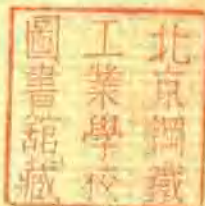 北京鋼鐵
工業學校
圖書舘藏